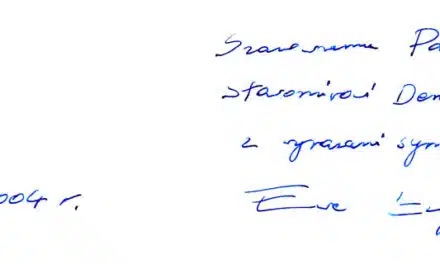 Szanownemu Pa
Sławomirowi Dom
z wyrazami sym
004 r.
Ewa